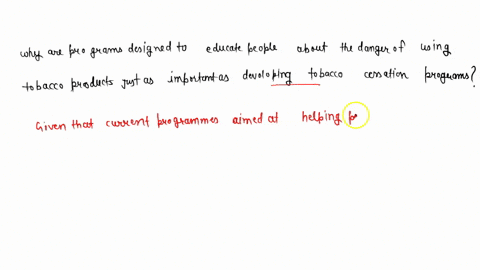 why are programs designed to educate people about the danger of using
tobacco products just as important as developing tobacco cessation programs?
Given that current programmes aimed at helping p